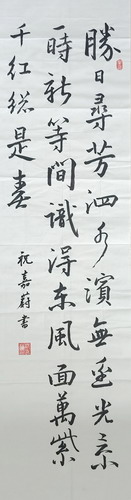 勝日尋芳泗水濱無邊光景
一時新等間識得东風面萬紫
千紅總是春
祝嘉蔚書